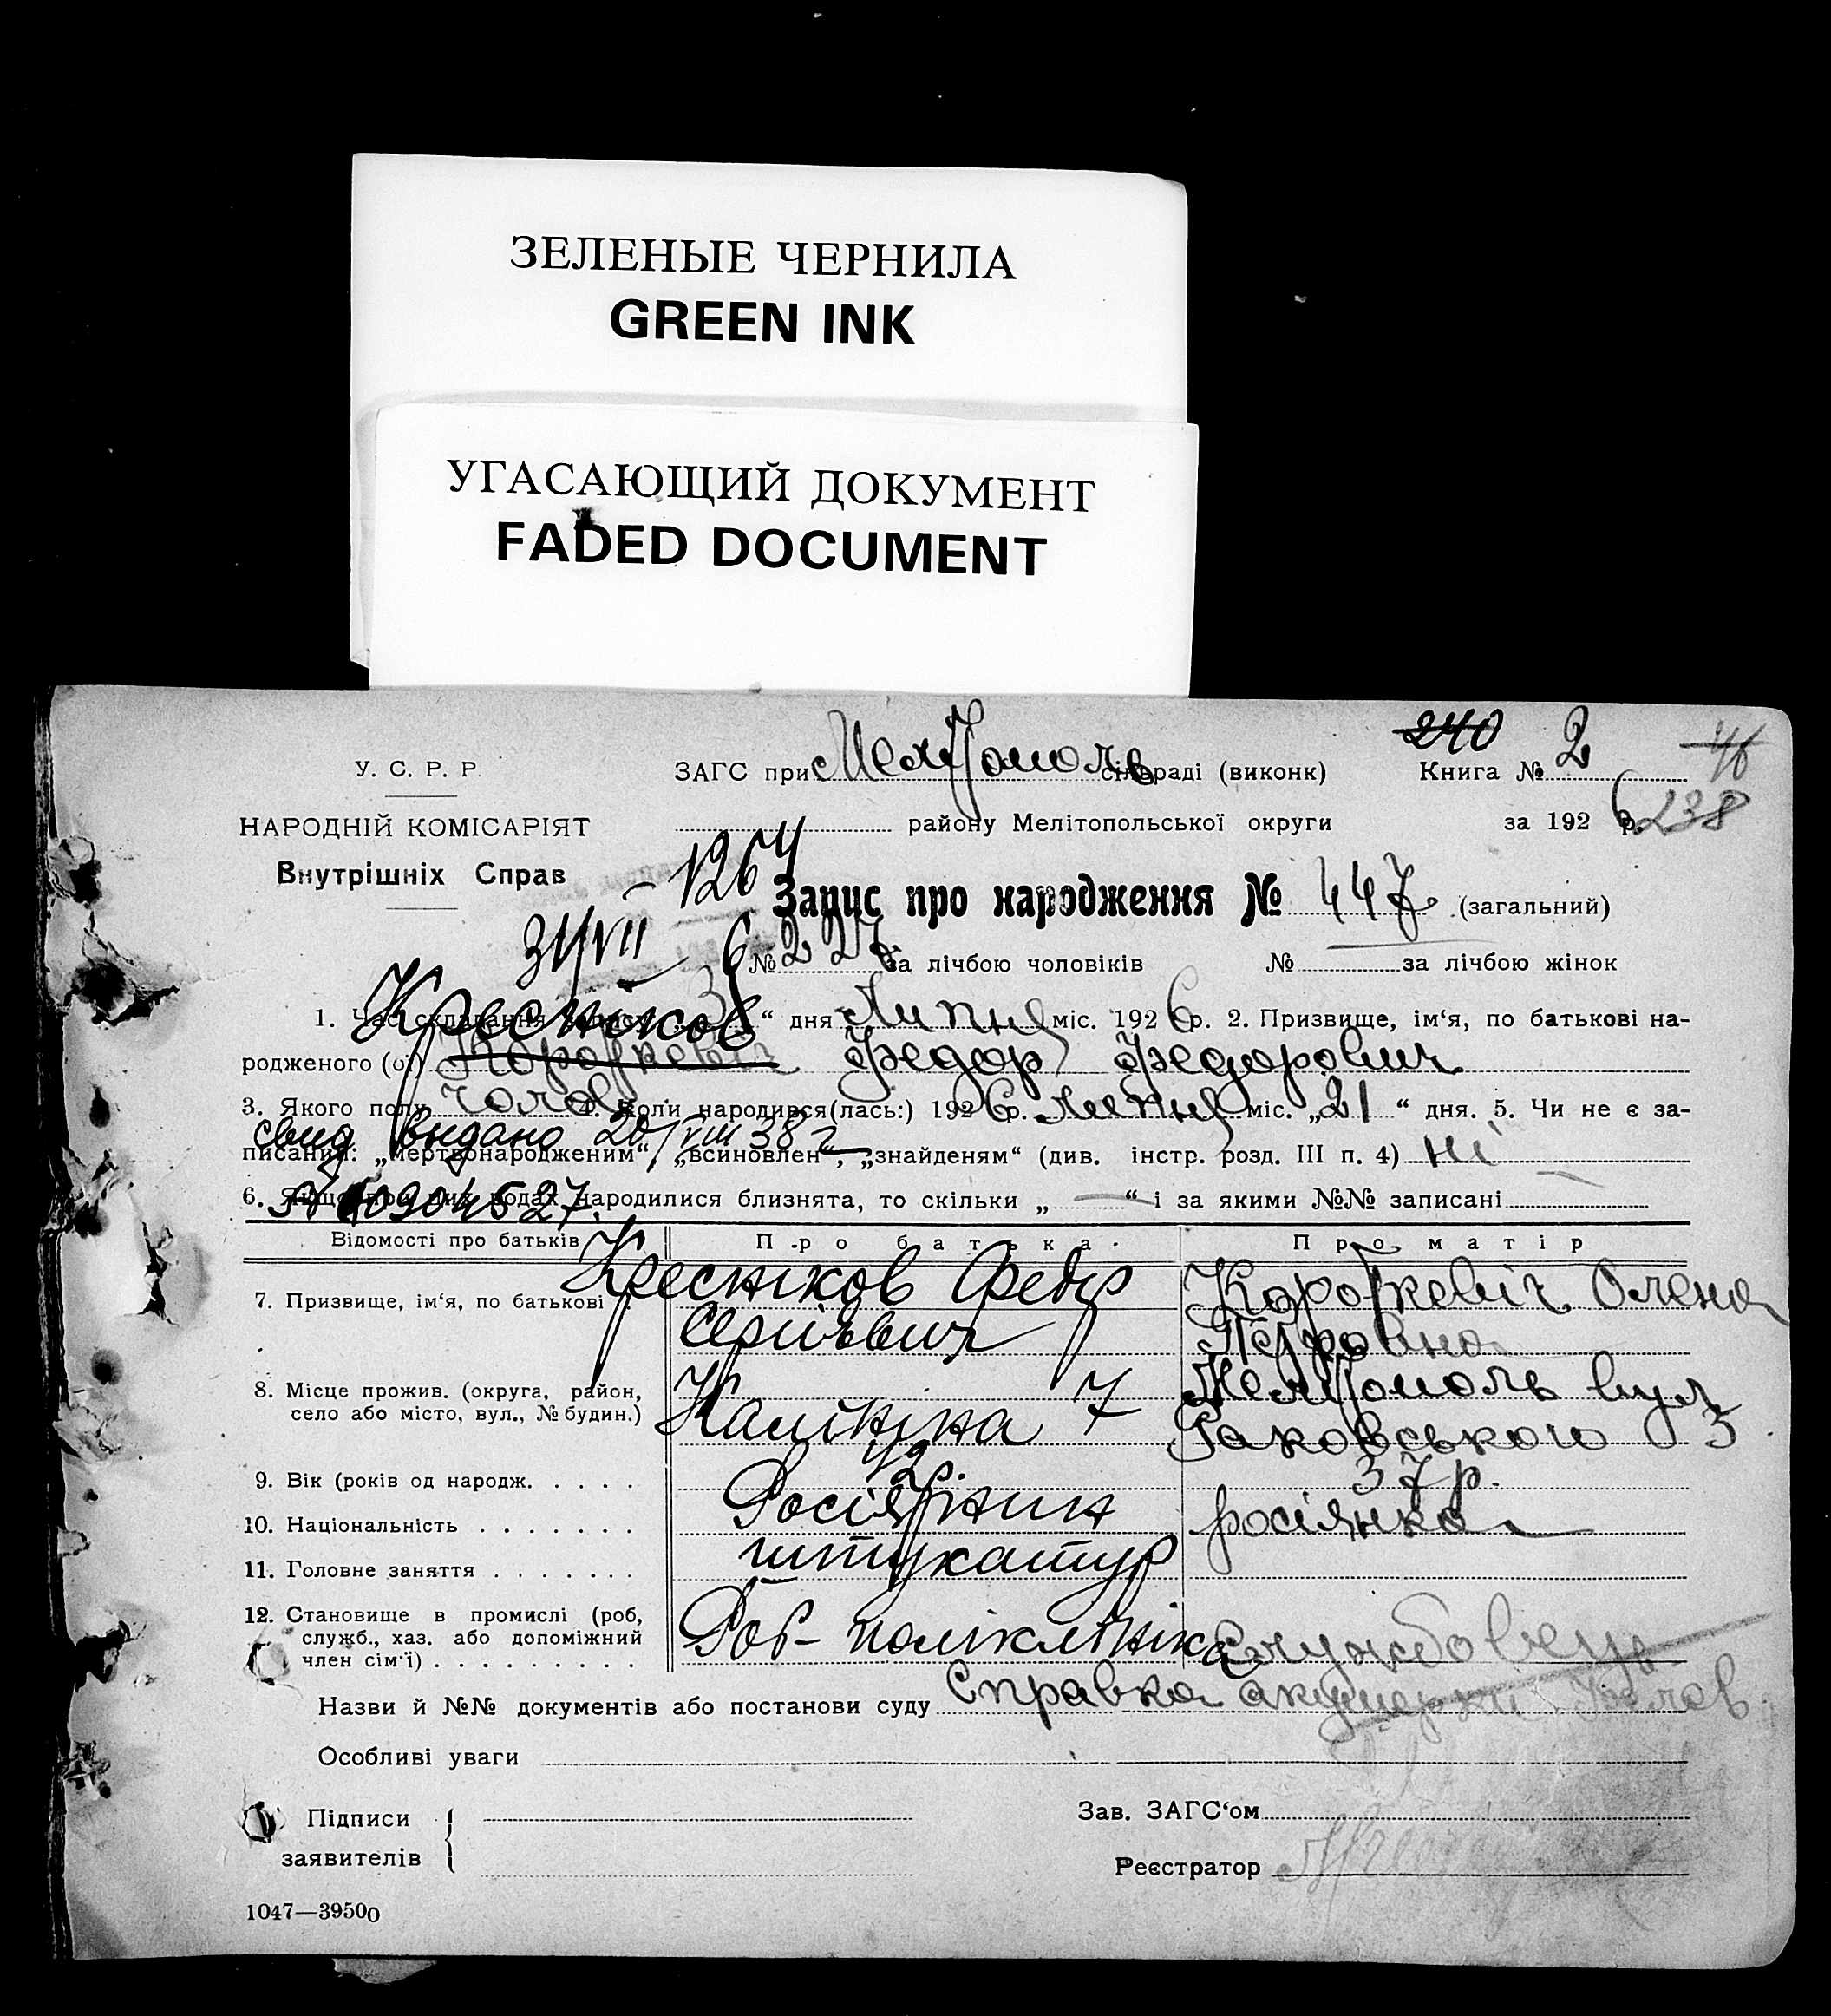 ЗЕЛЕНЫЕ ЧЕРНИЛА
GREEN INK
УГАСАЮЩИЙ ДОКУМЕНТ
FADED DOCUMENT
240 46
У. С. Р. Р. ЗАГС при Мелітополь сільраді (виконк) Книга № 2
238
НАРОДНІЙ КОМІСАРІЯТ району Мелітопольської округи за 1926 р.
Внутрішніх Справ
1264
Запис про народження № 447 (загальний)
31/VII
6 № 227 за лічбою чоловіків № за лічбою жінок
Кресніков
1. Час складання запису „31“ дня Липня міс. 1926 р. 2. Призвище, ім‘я, по батькові на-
родженого (ої) Короткевіч Федор Федорович
3. Якого полу чолов. 4. Коли народився(лась:) 1926 р. липня міс. „21“ дня. 5. Чи не є за-
свид выдано 20/VIII 38 г
писаний: „мертвонародженим“, „всиновлен“, „знайденям“ (див. інстр. розд. III п. 4) ні
6. Якщо при цих родах народилися близнята, то скільки „ “ і за якими №№ записані
Відомості про батьків Про батька Про матір
7. Призвище, ім‘я, по батькові Кресніков Федір Короткевіч Олена
Сергійович Петровна
8. Місце прожив. (округа, район, Мелітополь вул
село або місто, вул., № будин.) 7 Раковського 3
9. Вік (років од народж. 42р. 37р.
10. Національність росіянка
11. Головне заняття штукатур
12. Становище в промислі (роб, Роб- поліклініка Службовец
служб., хаз. або допоміжний
член сім‘ї)
Назви й №№ документів або постанови суду Справка акушерки
Особливі уваги
Підписи
заявителів
Зав. ЗАГС‘ом
Реєстратор
1047—39500